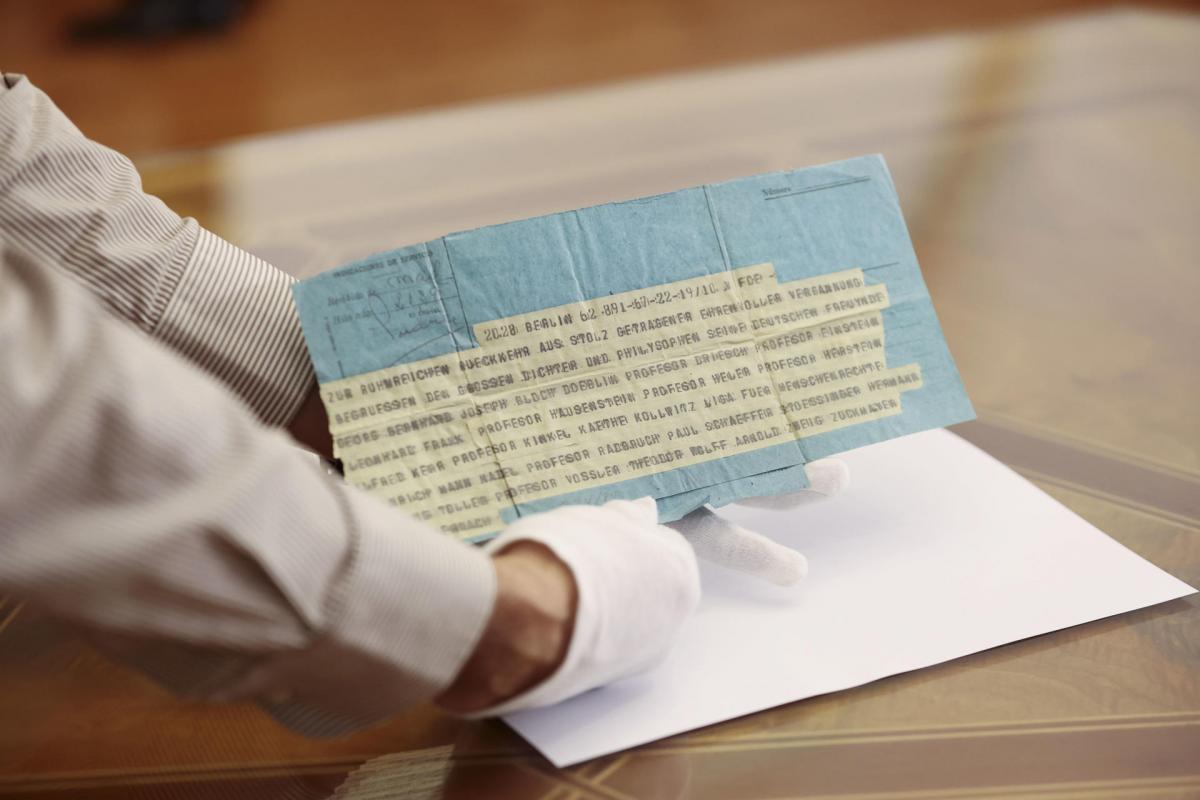 INDICACIONES DE SERVICIO
Número
2028 BERLIN 62 891-67-22-19/10
ZUM RUHMREICHEN RUECKKEHR AUS STOLZ GETRAGENER EHRENVOLLER VERBANNUNG
BEGRUESSEN DEN GROSSEN DICHTER UND PHILYSOPHEN SEINE DEUTSCHEN FREUYNDE
GEORG BERNHARD JOSEPH BLOCH DOEBLIN PROFESOR DRIESCH PROFESOR EINSTEIN
LEONHARD FRANK PROFESOR HAUSENSTEIN PROFESOR HELER PROFESOR HERSTEIN
ALFRED KERR PROFESOR KINKEL KAETHE KOLLWITZ LIGA FUER MENSCHENRECHTE
HEINRICH MANN NADEL PROFESOR RADBRUCH PAUL SCHAEFFER STOESSINGER HERMANN
TOLLER PROFESOR VOSSLER THEODOR WOLFF ARNOLD ZWEIG ZUCKMAYER